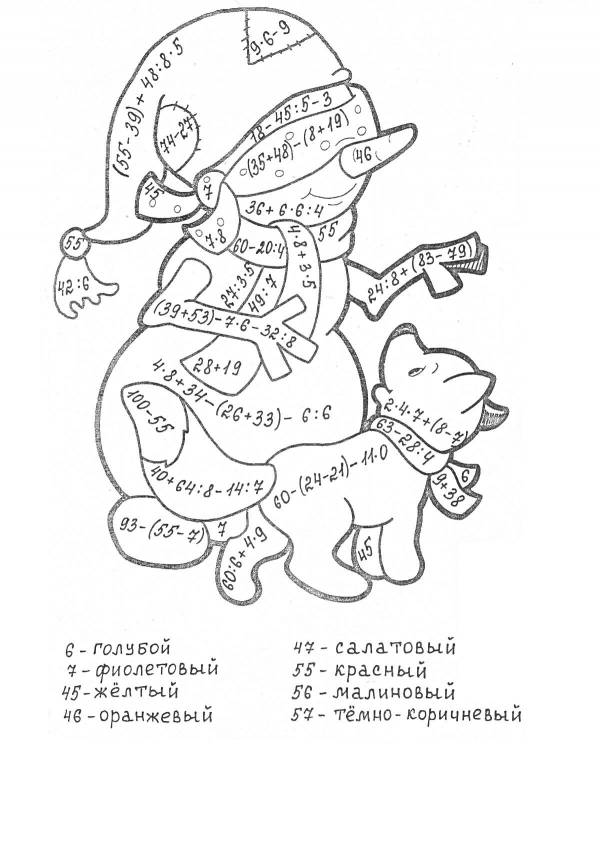 9·6-9
(55-39)+48:8·5
74-27
18-45:5-3
(35+48)-(8+19)
46
45
7
36+6·6:4
7·8
60-20:4
4·8+3·5
55
55
42:6
24:8+(83-79)
27:3·5
49:7
(39+53)-7·6-32:8
28+19
4·8+34-(26+33)-6:6
100-55
2·4·7+(8-7)
63-28:4
6
9+38
40+64:8-14:7
60-(24-21)-11·0
93-(55-7)
7
60:6+4·9
45
6 - голубой
7 - фиолетовый
45 - жёлтый
46 - оранжевый
47 - салатовый
55 - красный
56 - малиновый
57 - тёмно-коричневый